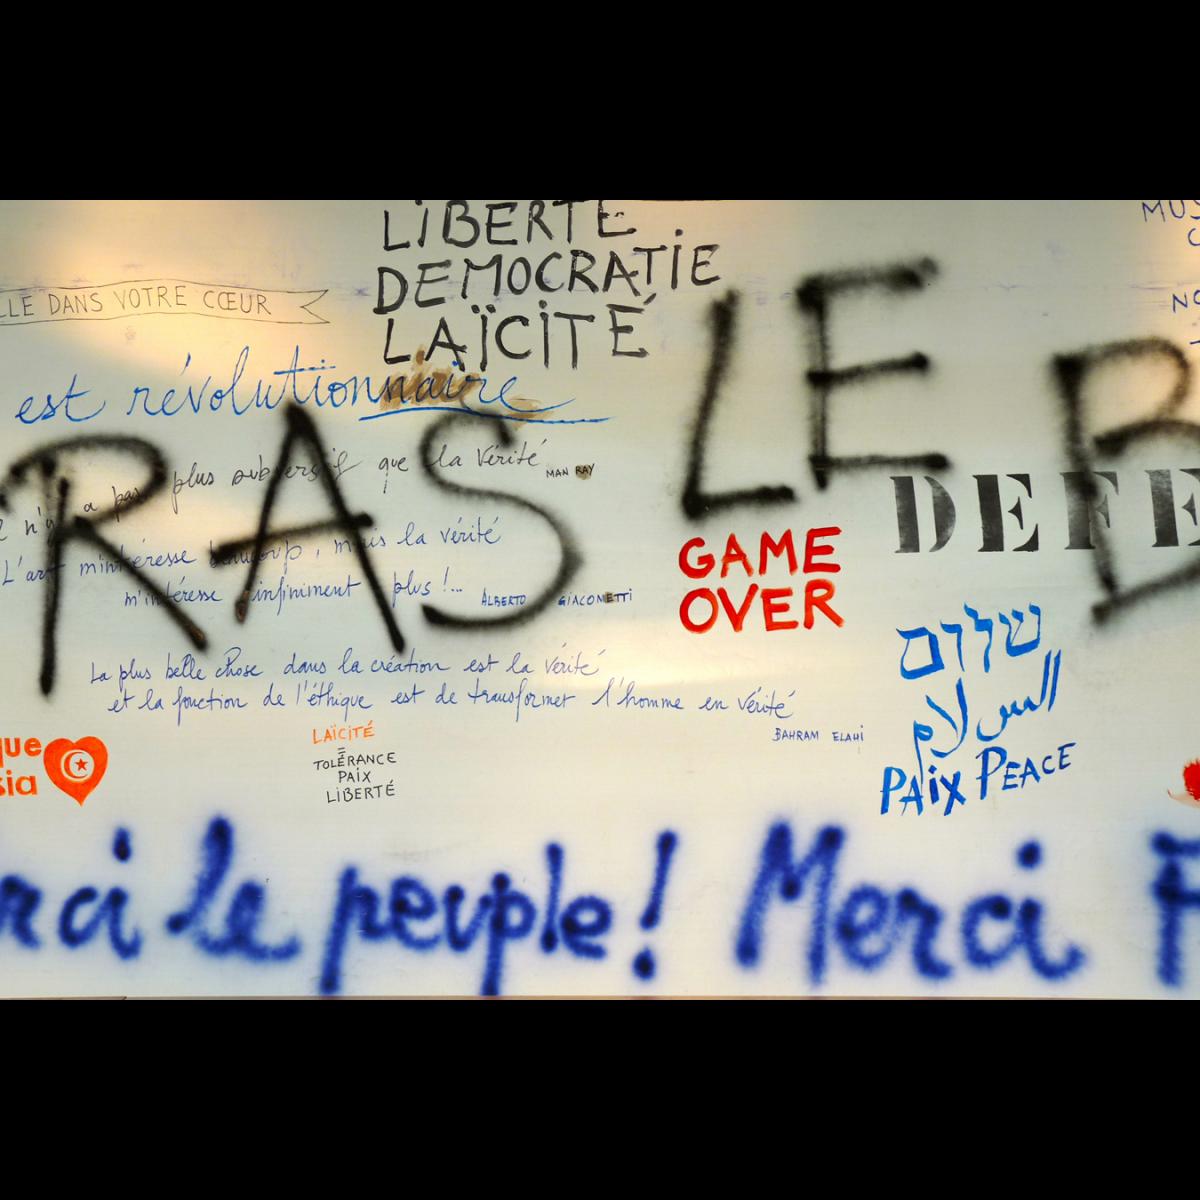 LIBERTE
DEMOCRATIE
LAÏCITÉ
LLE DANS VOTRE CŒUR
est révolutionnaire
RAS LE B
n'y a pas plus subversif que la Vérité MAN RAY
L'art m'intéresse beaucoup, mais la vérité
m'intéresse infiniment plus !... ALBERTO GIACOMETTI
DEFE
GAME
OVER
שלום
السلام
PAIX PEACE
La plus belle chose dans la création est la Vérité
et la fonction de l'éthique est de transformer l'homme en Vérité
BAHRAM ELAHI
LAÏCITÉ
=
TOLÉRANCE
PAIX
LIBERTÉ
que
sia
rci le peuple! Merci F
MUS
C
NO